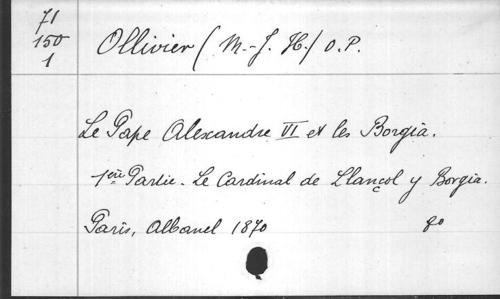 71
150
1
Ollivier (M.-J. H.) O.P.
Le Pape Alexandre VI et les Borgia.
1ère Partie. Le Cardinal de Llançol y Borgia.
Paris, Albanel 1870 8o